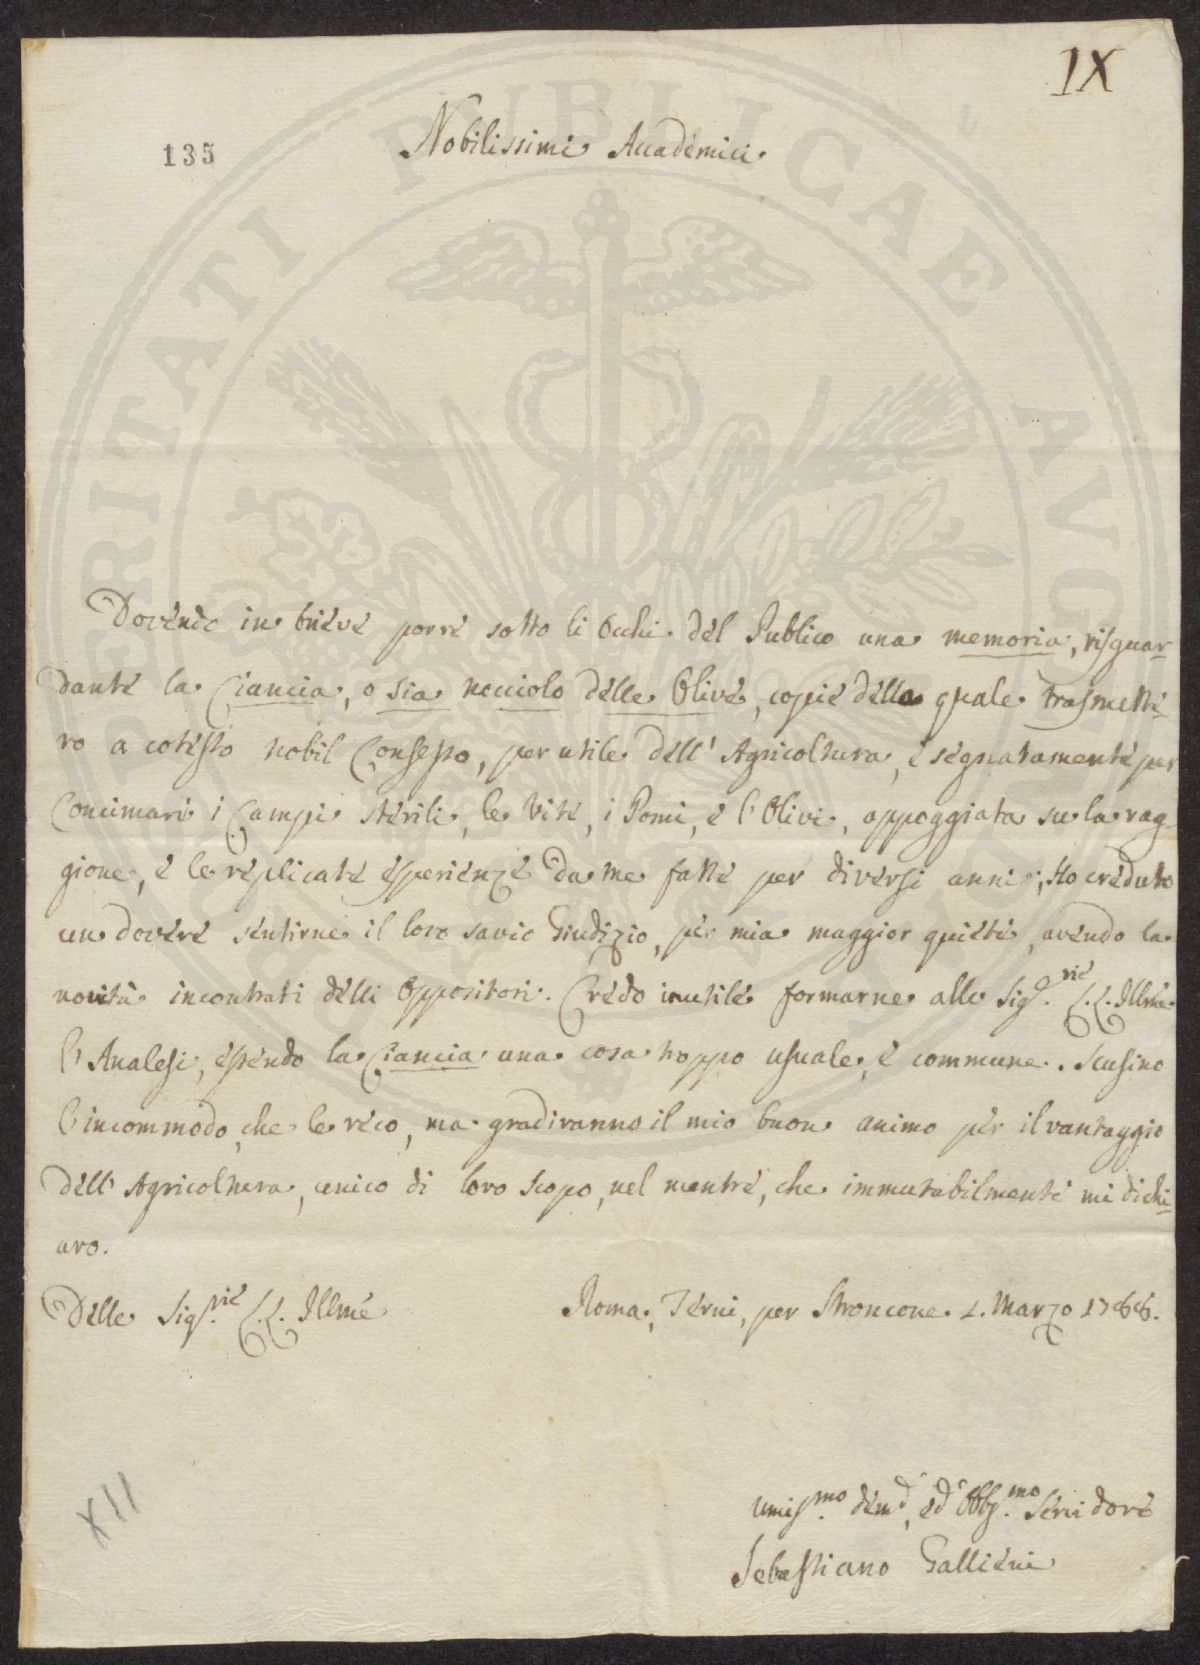 IX
135
Nobilissimi Accademici
Dovendo in breve porre sotto li Occhi del Publico una memoria, risguar-
dante la Ciancia, o sia nocciolo delle Olive, copie della quale trasmette-
ro a cotesto nobil Consesso, per utile dell' Agricoltura, e segnatamente per
Concimare i Campi sterili, le Vite, i Pomi, e l'Olivi, appoggiata su la rag-
gione, e le replicate esperienze da me fatte per diversi anni; Ho creduto
un dovere sentirne il loro savio Giudizio, per mia maggior quiete, avendo la
novità incontrati delli Oppositori. Credo inutile formarne alle Sig.rie L.L. Illme
l'Analesi, essendo la Ciancia una cosa troppo usuale, e commune. Scusino
l'incommodo, che le reco, ma gradiranno il mio buon animo per il vantaggio
dell' Agricoltura, unico di loro scopo, nel mentre, che immutabilmente mi dichi-
aro.
Delle Sig.rie L.L. Illme
Roma, Terni, per Stroncone 1. Marzo 1786.
XII
Umiss.mo ed Obb.mo Servidore
Sebastiano Gallieni
PUBLICAE